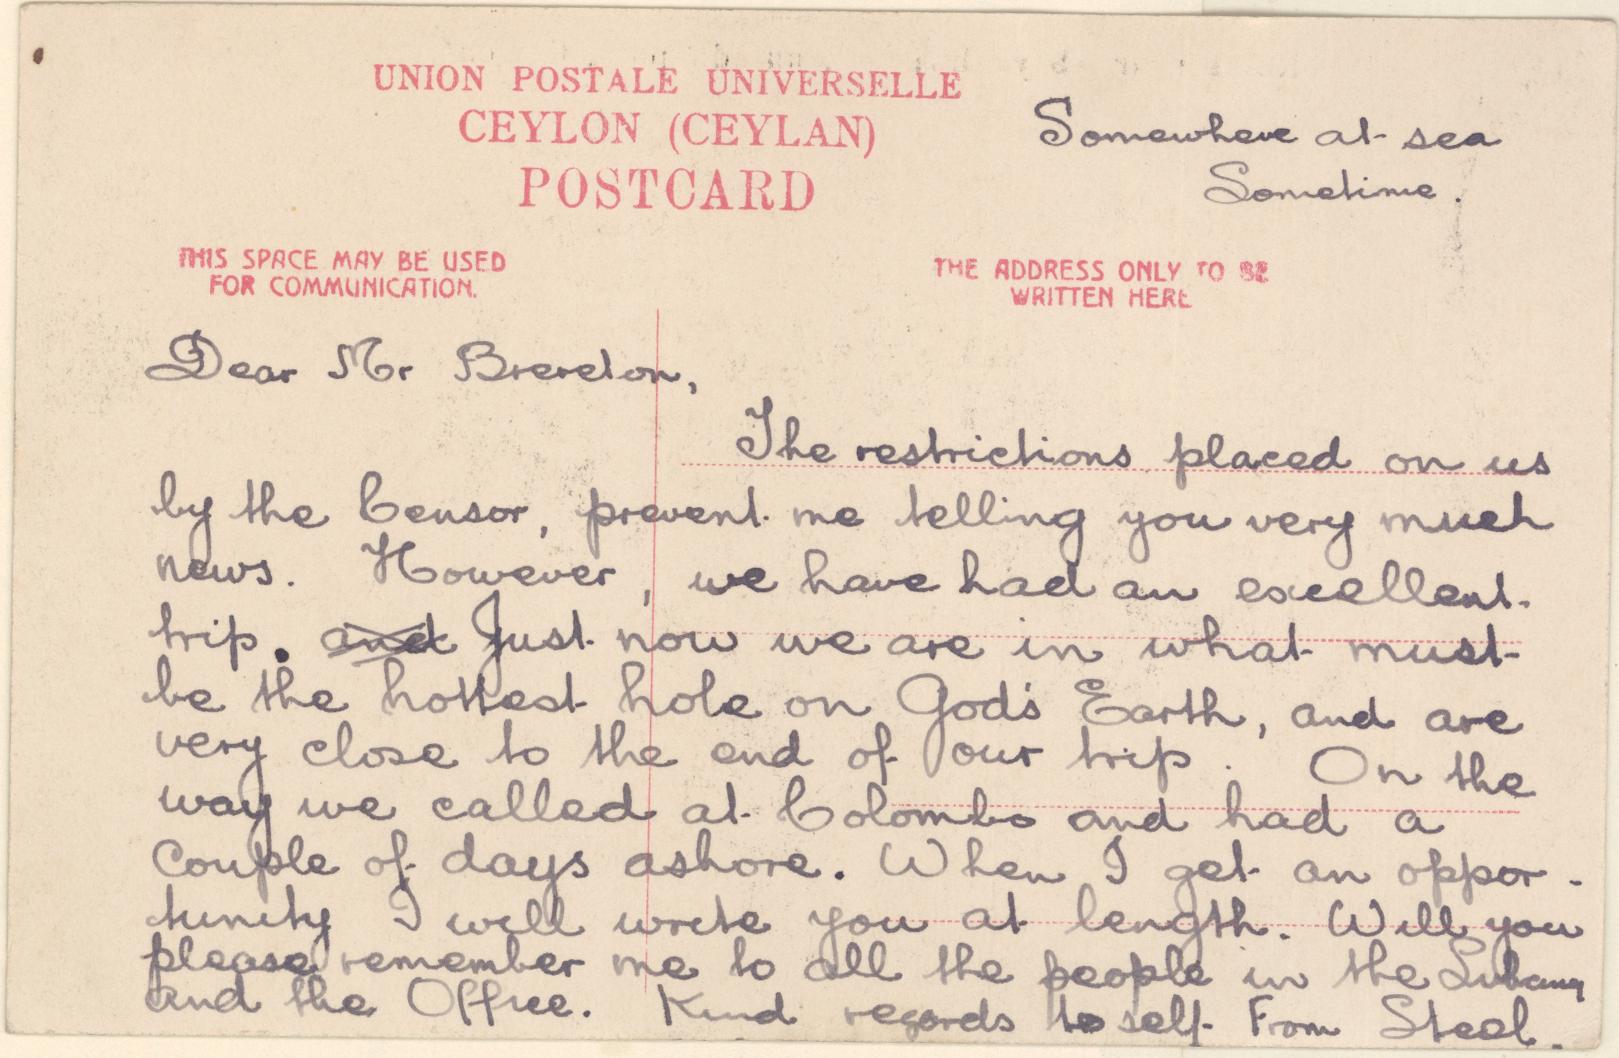 UNION POSTALE UNIVERSELLE
CEYLON (CEYLAN)
POSTCARD
Somewhere at sea
Sometime.
THIS SPACE MAY BE USED
FOR COMMUNICATION.
THE ADDRESS ONLY TO BE
WRITTEN HERE
Dear Mr Brereton,
The restrictions placed on us
by the Censor, prevent me telling you very much
news. However, we have had an excellent
trip. and Just now we are in what must
be the hottest hole on God's Earth, and are
very close to the end of our trip. On the
way we called at Colombo and had a
couple of days ashore. When I get an oppor-
tunity I will write you at length. Will you
please remember me to all the people in the
and the Office. Kind regards to self. From Steel.